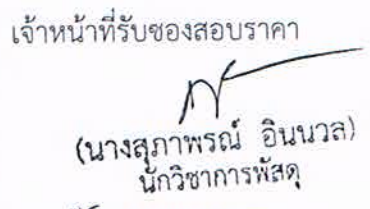 เจ้าหน้าที่รับซองสอบราคา
(นางสุภาพรณ์ อินนวล)
นักวิชาการพัสดุ